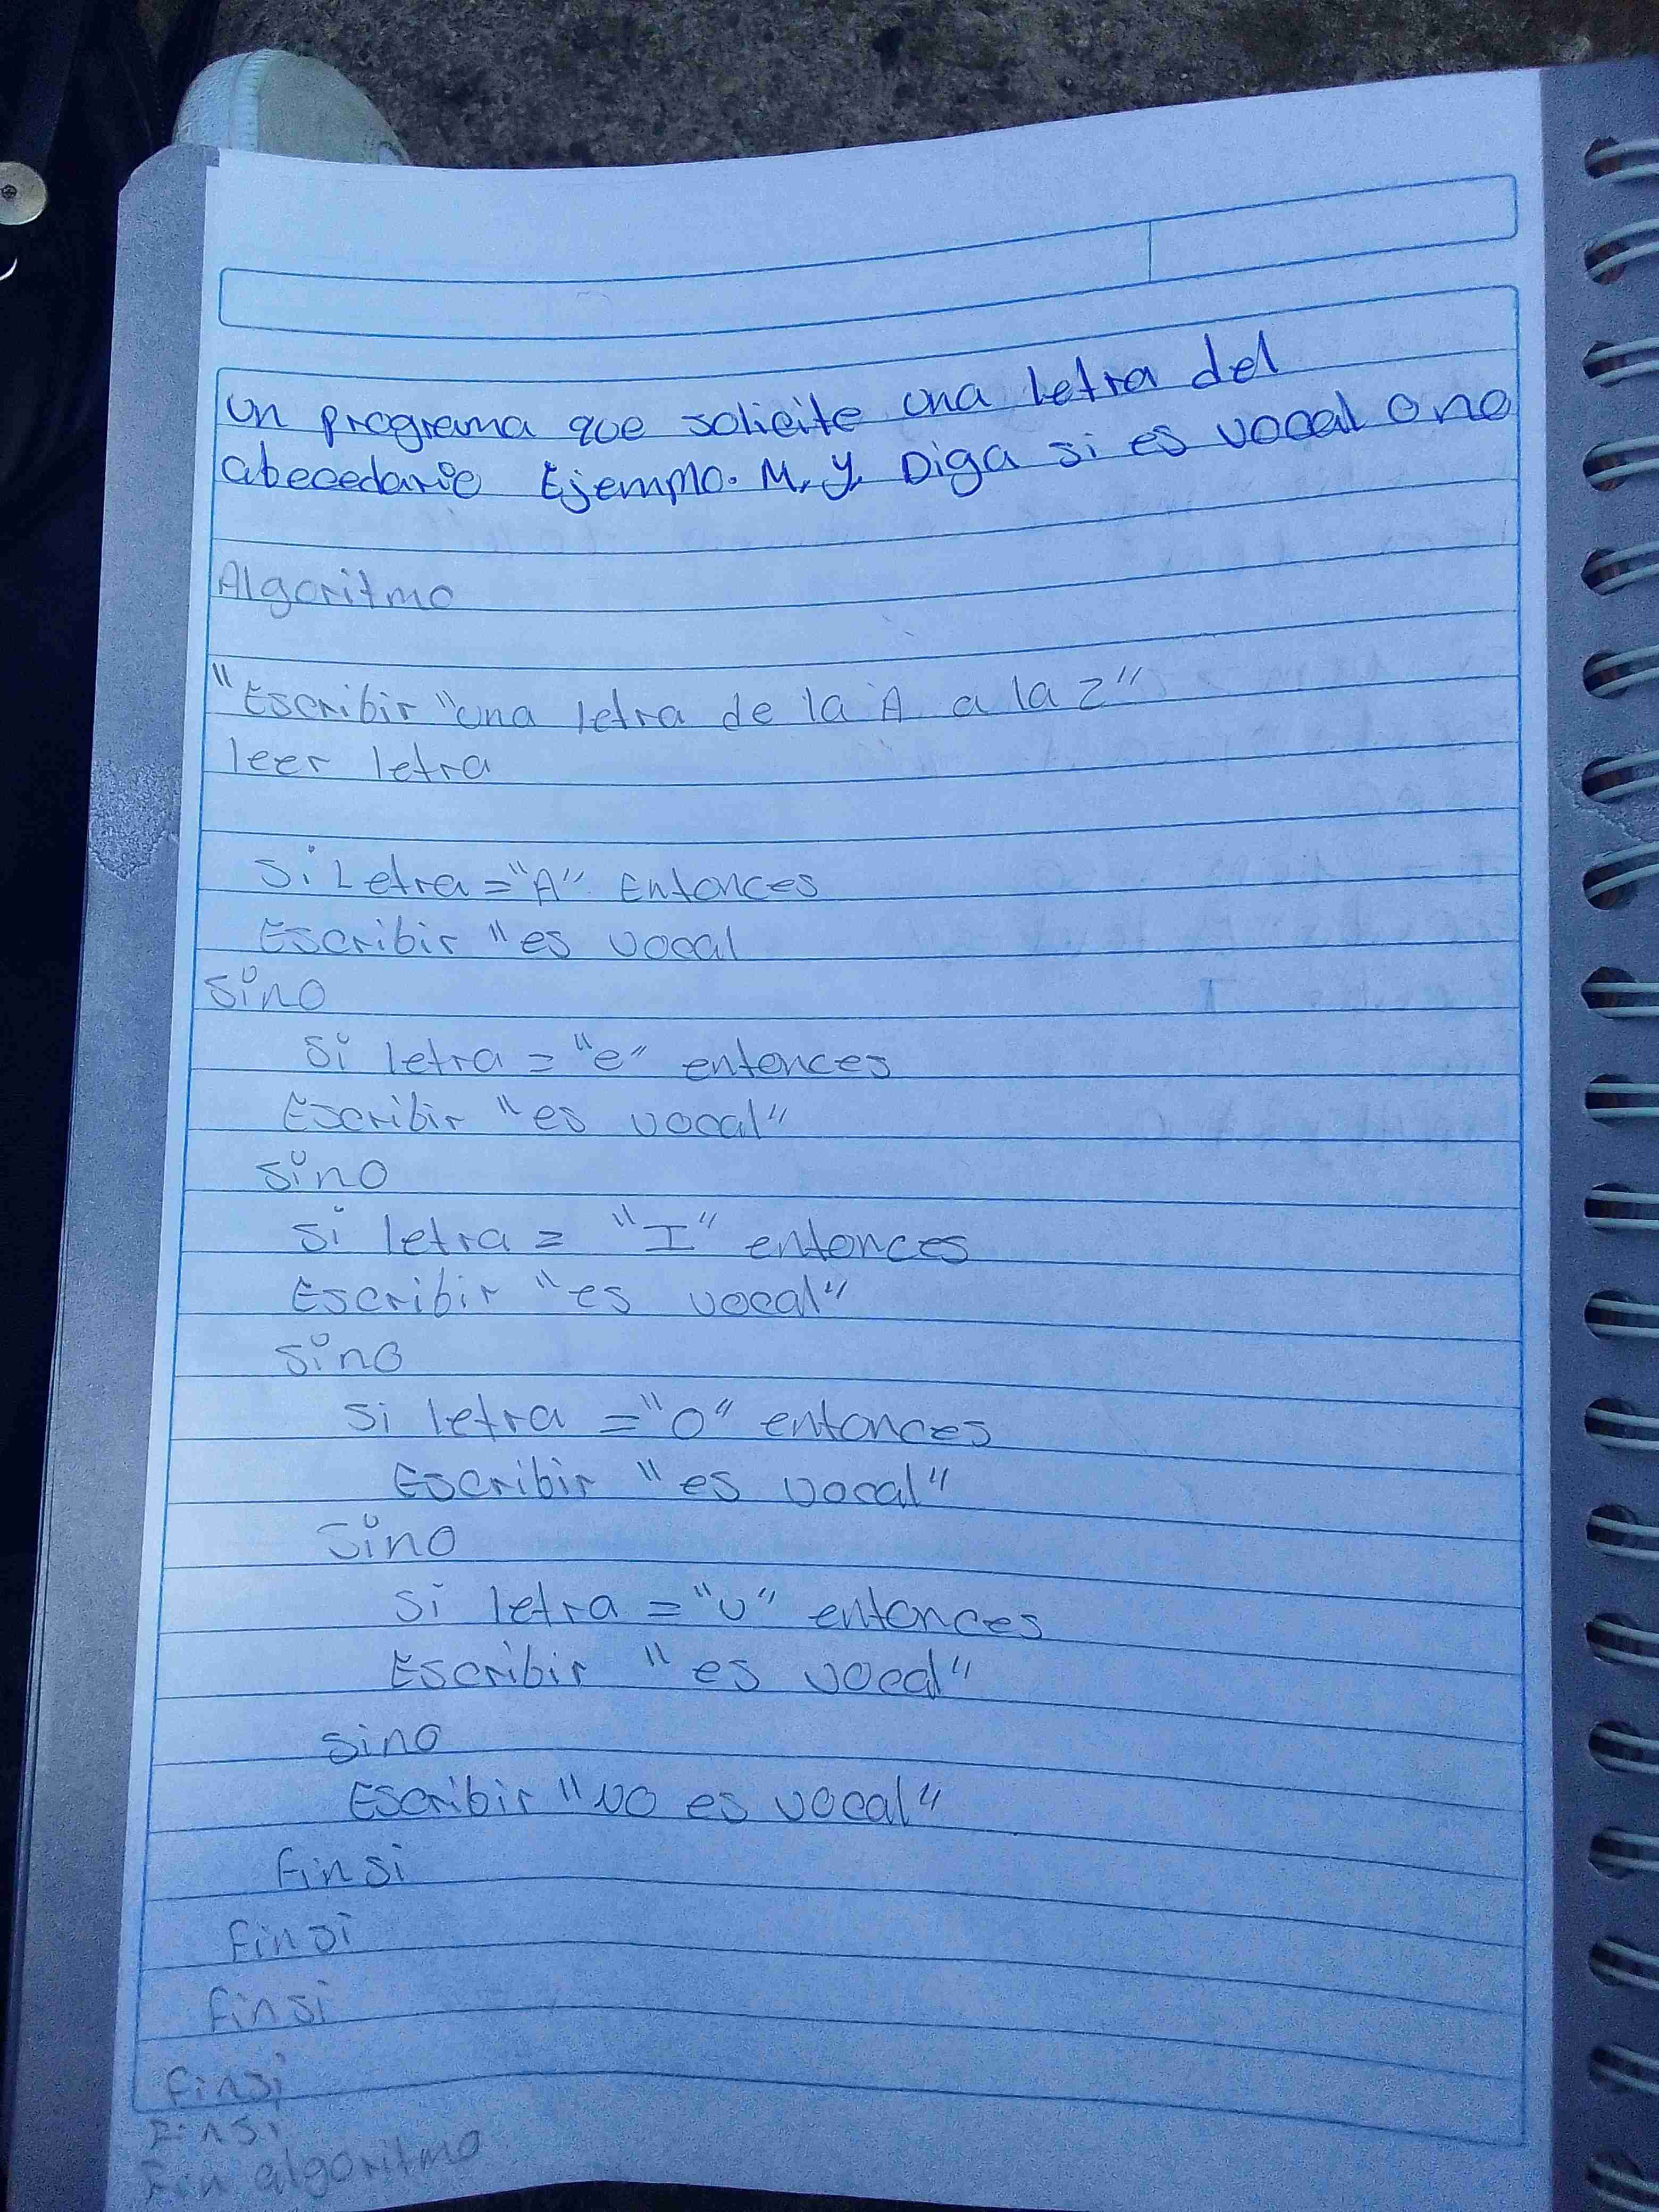 Un programa que solicite una letra del
abecedario Ejemplo. M, y. Diga si es vocal o no
Algoritmo
"Escribir "una letra de la A a la Z"
leer letra
Si Letra = "A" Entonces
Escribir "es vocal
Sino
Si letra = "e" entonces
Escribir "es vocal"
Sino
Si letra = "I" entonces
Escribir "es vocal"
Sino
Si letra = "O" entonces
Escribir "es vocal"
Sino
Si letra = "U" entonces
Escribir "es vocal"
Sino
Escribir "NO es vocal"
Finsi
finsi
finsi
finsi
Finsi
Fin algoritmo